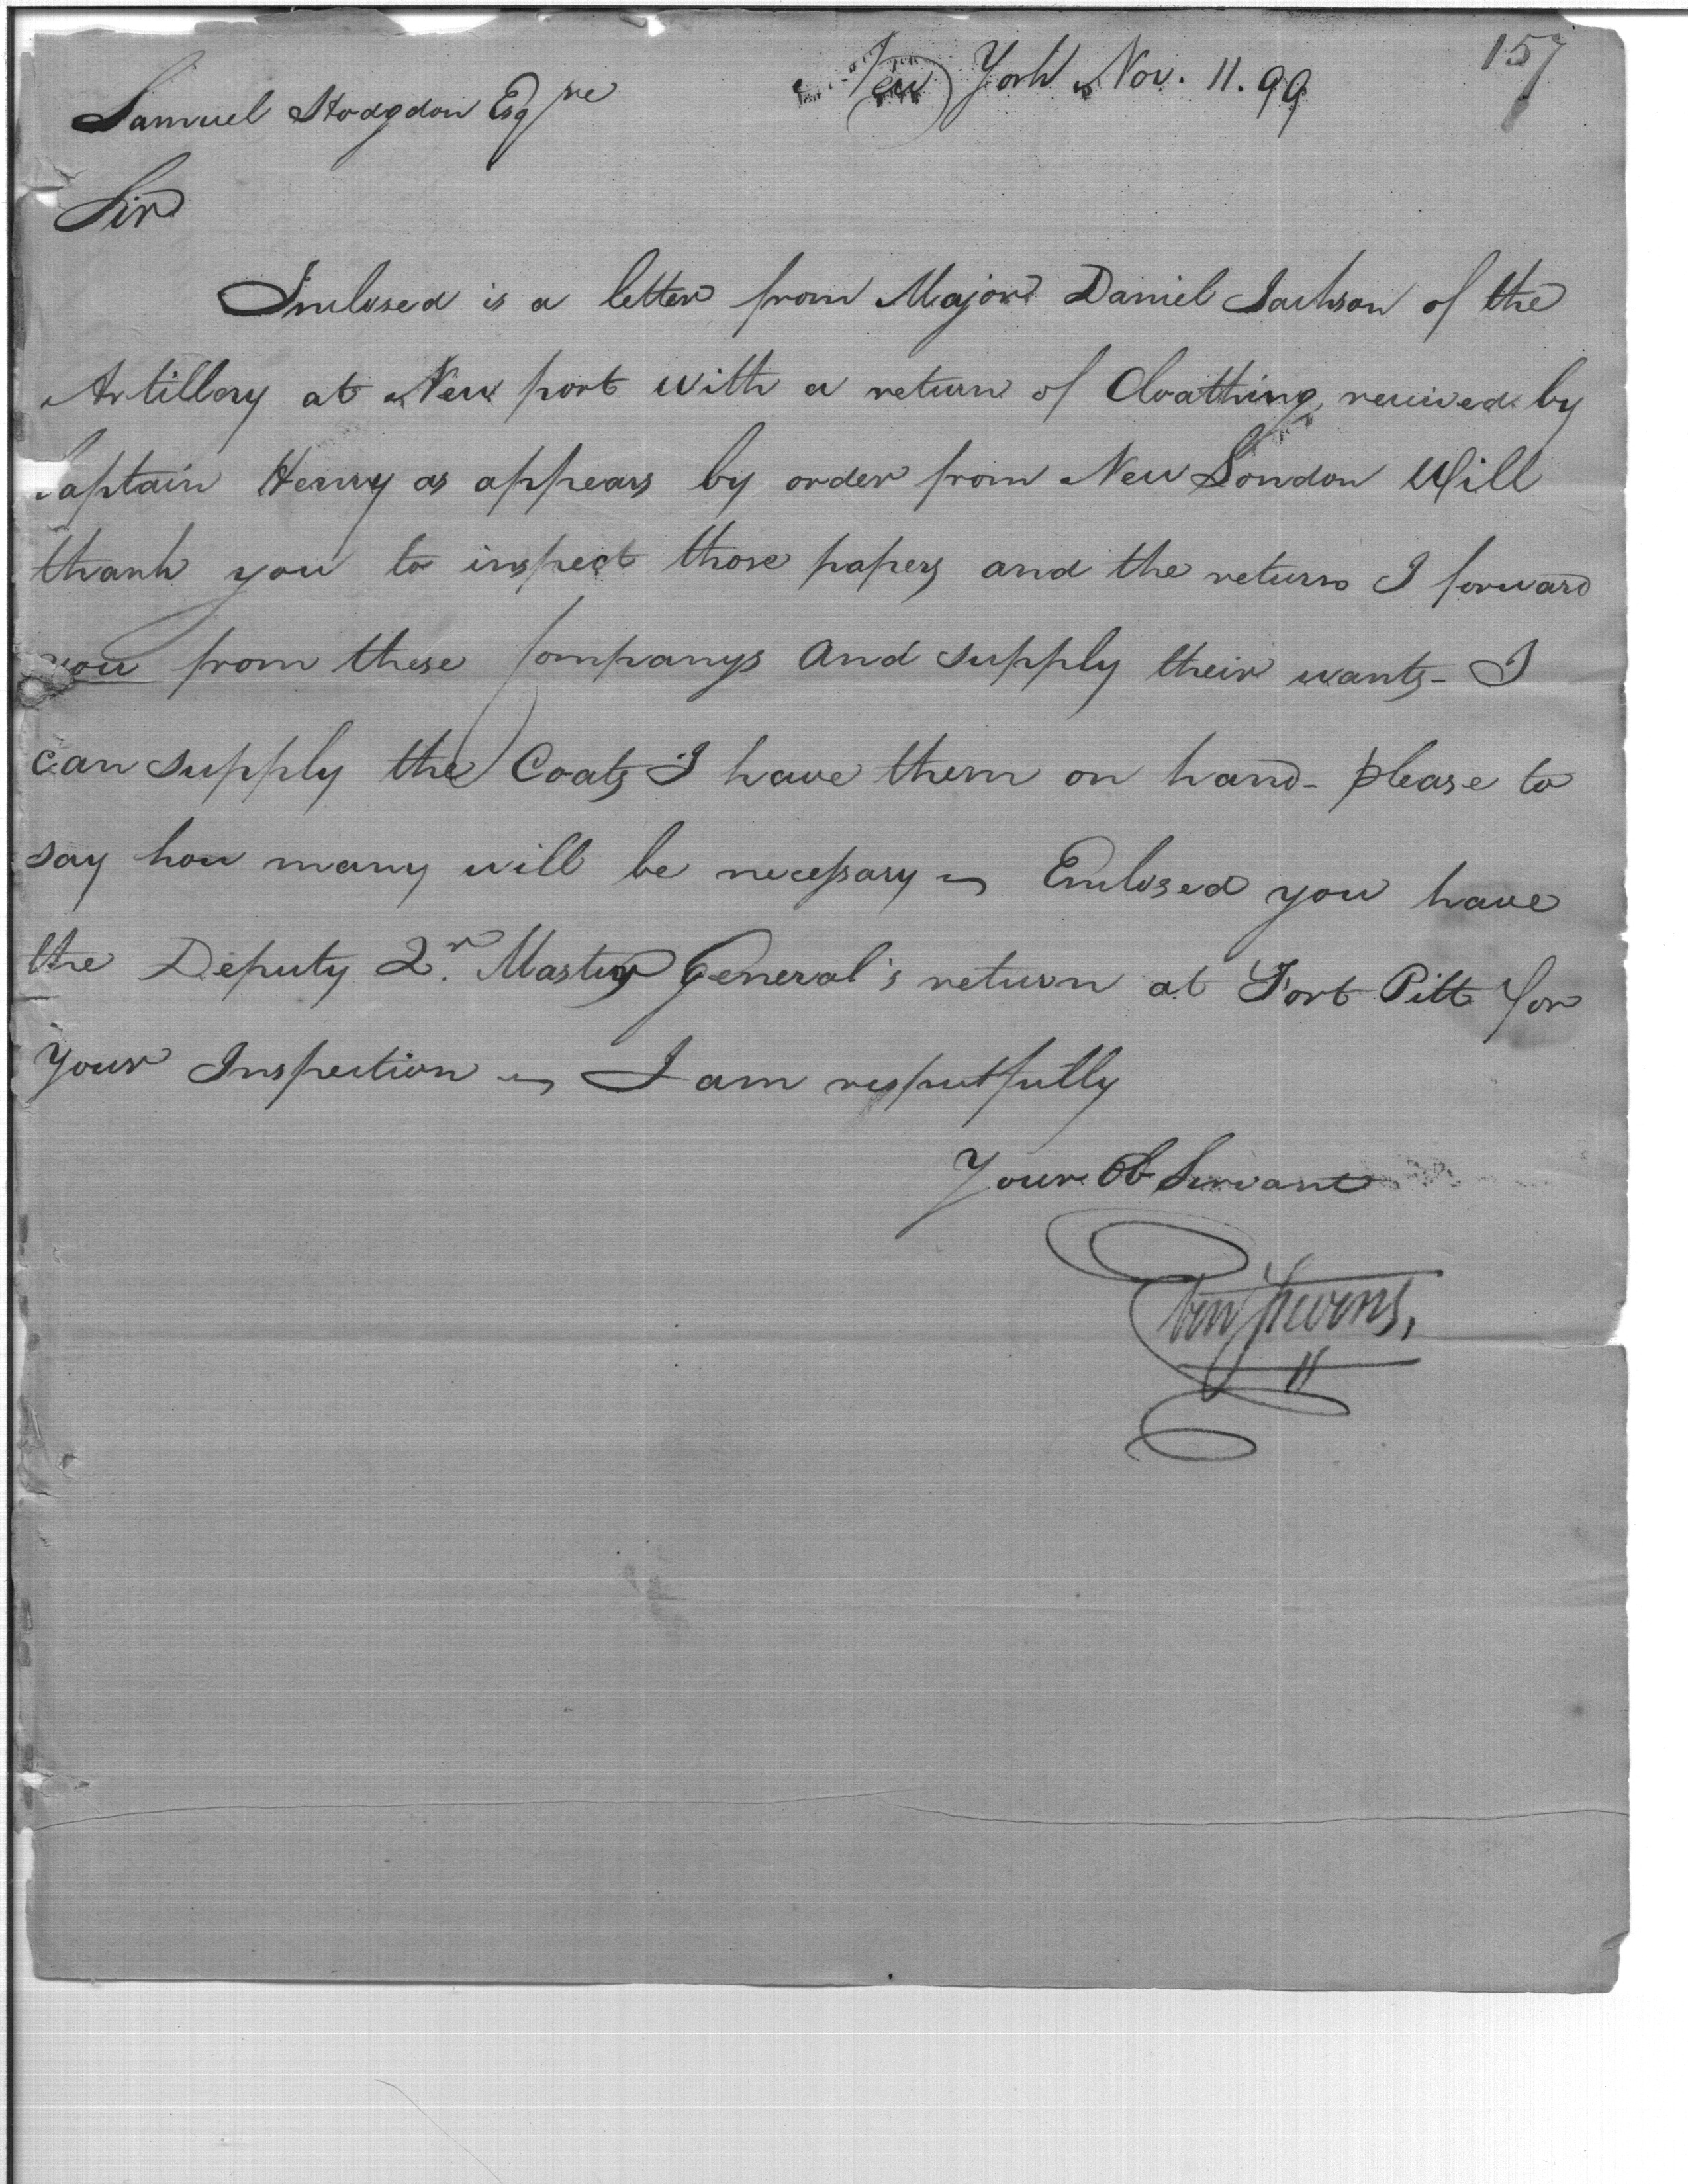 157
New York Nov. 11. 99
Samuel Hodgdon Esqre
Sir
Inclosed is a letter from Major Daniel Jackson of the
Artillery at New port with a return of Cloathing received by
Captain Henry as appears by order from New London Will
thank you to inspect those papers and the returns I forward
you from these Companys and supply their wants - I
can supply the Coats I have them on hand - please to
say how many will be necessary ~ Enclosed you have
the Deputy Qr. Master General's return at Fort Pitt for
Your Inspection ~ I am respectfully
Your Ob Servant
Eben Stevens,